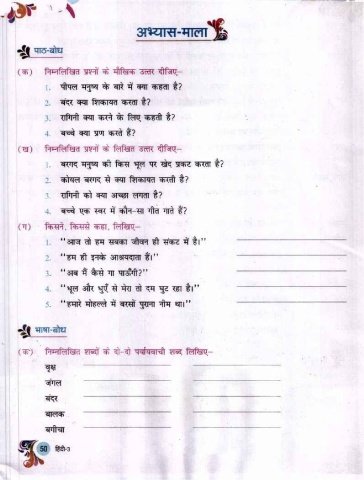 अभ्यास-माला
पाठ-बोध
(क) निम्नलिखित प्रश्नों के मौखिक उत्तर दीजिए–
1. पीपल मनुष्य के बारे में क्या कहता है?
2. बंदर क्या शिकायत करता है?
3. रागिनी क्या करने के लिए कहती है?
4. बच्चे क्या प्रण करते हैं?
(ख) निम्नलिखित प्रश्नों के लिखित उत्तर दीजिए–
1. बरगद मनुष्य की किस भूल पर खेद प्रकट करता है?
2. कोयल बरगद से क्या शिकायत करती है?
3. रागिनी को क्या अच्छा लगता है?
4. बच्चे एक स्वर में कौन-सा गीत गाते हैं?
(ग) किसने, किससे कहा, लिखिए–
1. "आज तो हम सबका जीवन ही संकट में है।"
2. "हम ही इनके आश्रयदाता हैं।"
3. "अब मैं कैसे गा पाऊँगी?"
4. "धूल और धुएँ से मेरा तो दम घुट रहा है।"
5. "हमारे मोहल्ले में बरसों पुराना नीम था।"
भाषा-बोध
(क) निम्नलिखित शब्दों के दो-दो पर्यायवाची शब्द लिखिए–
वृक्ष
जंगल
बंदर
बालक
बगीचा
50 हिंदी-3